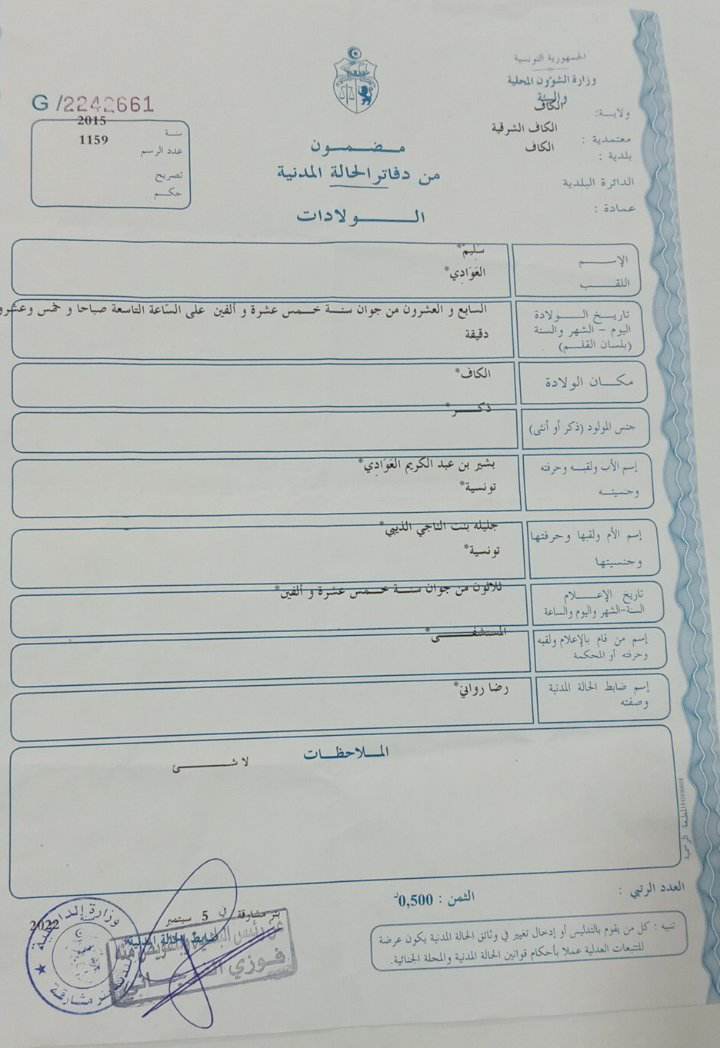 الجمهورية التونسية
وزارة الشؤون المحلية
والبيئة
ولاية: الكاف
معتمدية : الكاف الشرقية
بلدية : الكاف
الدائرة البلدية
عمادة :
G /2242661
سنة 2015
عدد الرسم 1159
تصريح
حكم
مضمون
من دفاتر الحالة المدنية
الولادات
الإسم سليم*
اللقب العوادي*
تاريخ الولادة
اليوم - الشهر والسنة
(بلسان القلم)
السابع و العشرون من جوان سنة خمس عشرة و ألفين على الساعة التاسعة صباحا و خمس وعشرو
دقيقة
مكان الولادة الكاف*
جنس المولود (ذكر أو أنثى) ذكر*
إسم الأب ولقبه وحرفته بشير بن عبد الكريم العوادي*
وجنسيته تونسية*
إسم الأم ولقبها وحرفتها جليله بنت الناجي الذيبي*
وجنسيتها تونسية*
تاريخ الإعلام
السنة-الشهر واليوم والساعة
ثلاثون من جوان سنة خمس عشرة و ألفين*
إسم من قام بالإعلام ولقبه
وحرفته أو المحكمة
المستشفى*
إسم ضابط الحالة المدنية رضا رواني*
وصفته
الملاحظات
لا شئ
المطبعة الرسمية
العدد الرتبي :
الثمن : 0,500د
تنبيه : كل من يقوم بالتدليس أو إدخال تغيير في وثائق الحالة المدنية يكون عرضة
للتتبعات العدلية عملا بأحكام قوانين الحالة المدنية والمجلة الجنائية.
بئر مشارقة في 5 سبتمبر 2022
ضابط الحالة المدنية
عن رئيس البلدية وبتفويض منه
فوزي
وزارة الداخلية
بئر مشارقة